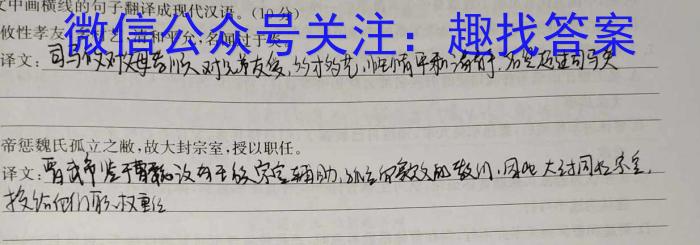 文中画横线的句子翻译成现代汉语。(10分)
微信公众号关注：趣找答案
攸性孝友,多才艺,清和平允,名闻过于炎
译文：司马攸对父母孝顺,对兄弟友爱,多才多艺,性情平和
帝惩魏氏孤立之敝,故大封宗室,授以职任。
译文：晋武帝鉴于曹魏没有王侯宗室辅助,的教训,因此大封同姓宗室,
授给他们职权重任